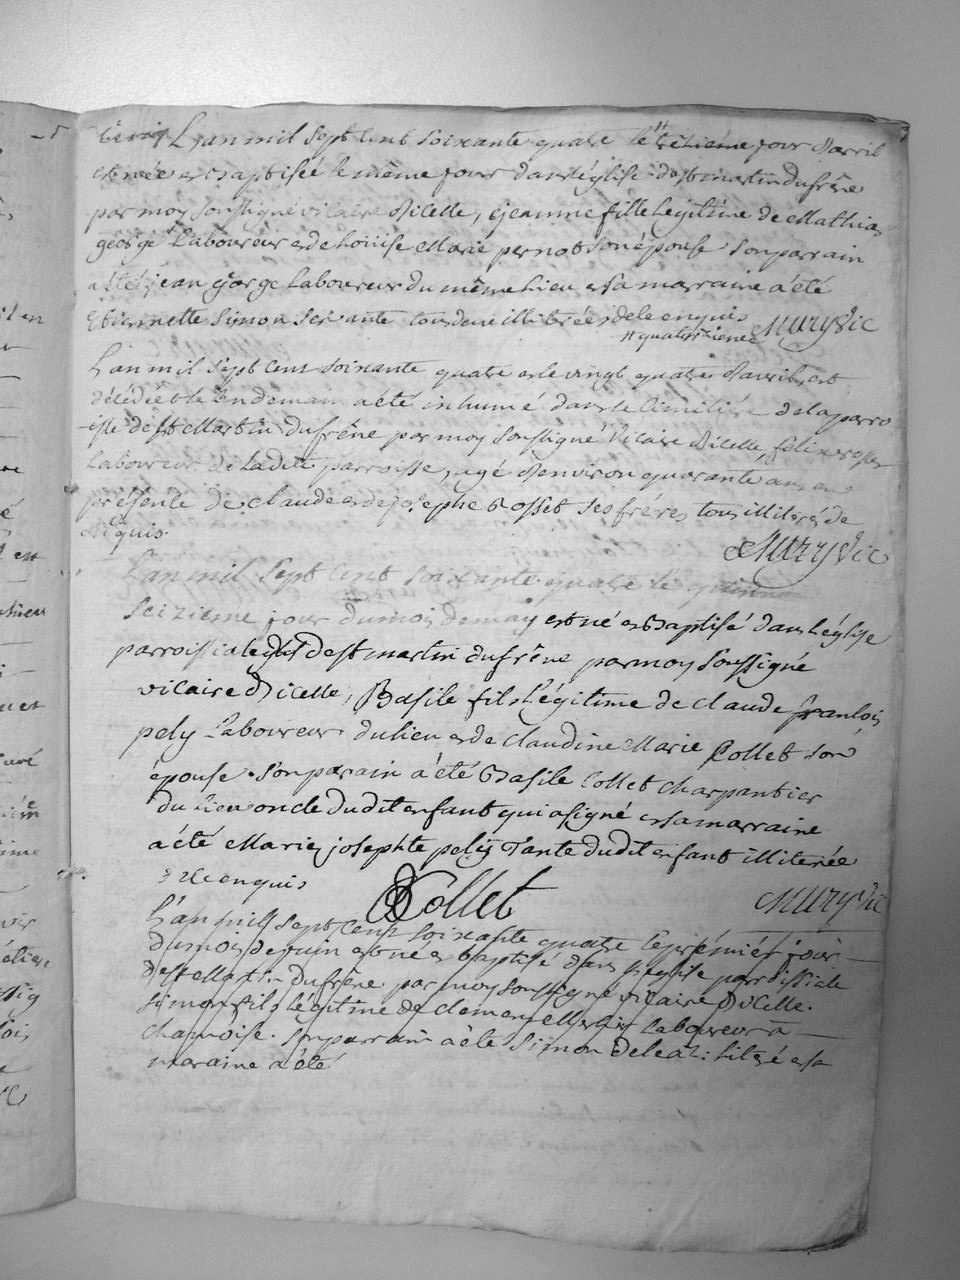 L'an mil sept cent soixante quatre le treizieme jour d'avril
est née et baptisée le même jour dans l'église de st martin du frêne
par moy soussigné vicaire d'icelle, jeanne fille legitime de Mathias
george Laboureur et de Louise Marie pernot son épouse son parrain
a été jean george Laboureur du même lieu et sa marraine a été
Etiennette Simon servante tous deux illitérés de ce enquis Mury Vic
# quatorzieme
L'an mil sept cent soixante quatre et le vingt quatre d'avril est
décédé et le lendemain a été inhumé dans le cimitière de la parro
isse de st Martin du frêne par moy soussigné vicaire d'icelle, felix rosset
Laboureur de la dite parroisse, agé d'environ quarante ans en
présence de claude et de josephe Rosset ses frères tous illiterés de
ce enquis. Mury Vic
L'an mil sept cent soixante quatre le
seizieme jour du mois de may est né et baptisé dans l'église
parroissiale de st martin du frêne par moy soussigné
vicaire d'icelle, Basile fils légitime de claude françois
pely Laboureur du lieu et de claudine Marie Collet son
épouse. son parain a été Basile Collet charpantier
du lieu oncle dudit enfant qui a signé et sa marraine
a été Marie josephte pely Tante dudit enfant illiterée
de ce enquis BCollet Mury Vic
L'an mill sept cent soixante quatre le prémiér jour
du mois de juin est né et baptisé dans l'église parroissiale
de st Martin du frêne par moy soussigné vicaire d'icelle.
simon fils légitime de clement laboureur a
chamoise. son parrain a été simon et sa
maraine a été